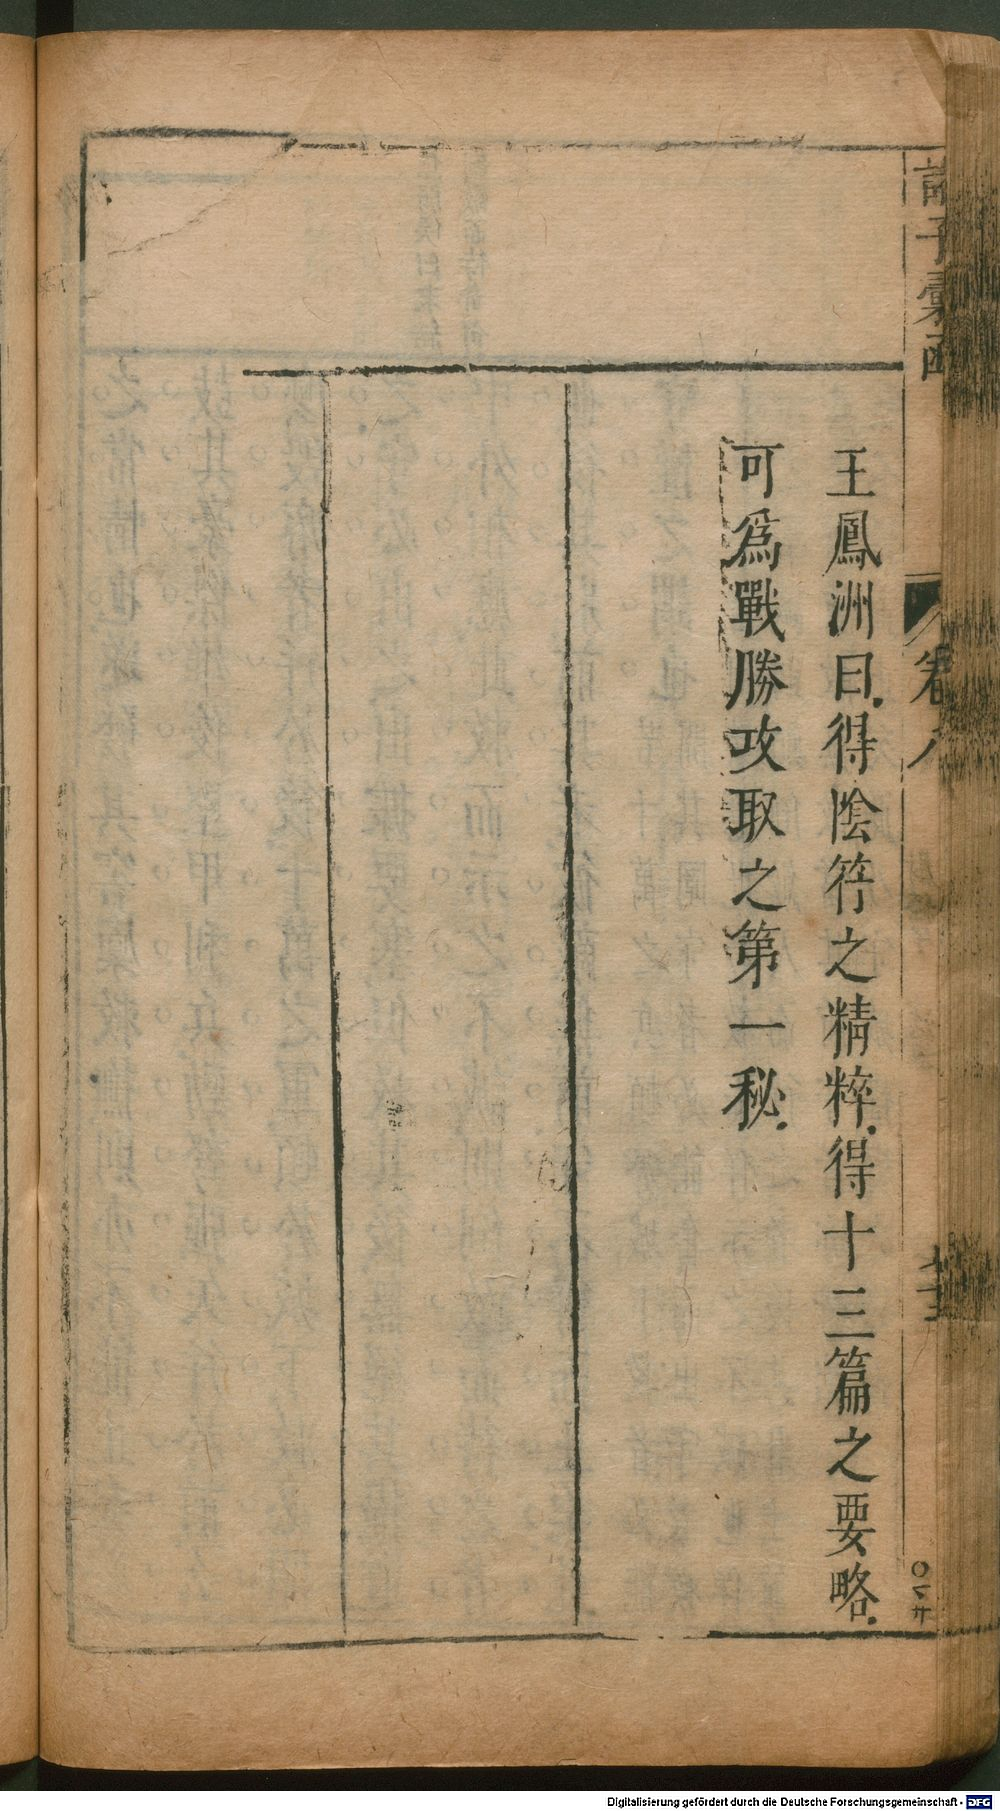 諸子彙函
卷八
王鳳洲曰得陰符之精粹得十三篇之要略
可爲戰勝攻取之第一秘
Digitalisierung gefördert durch die Deutsche Forschungsgemeinschaft - DFG